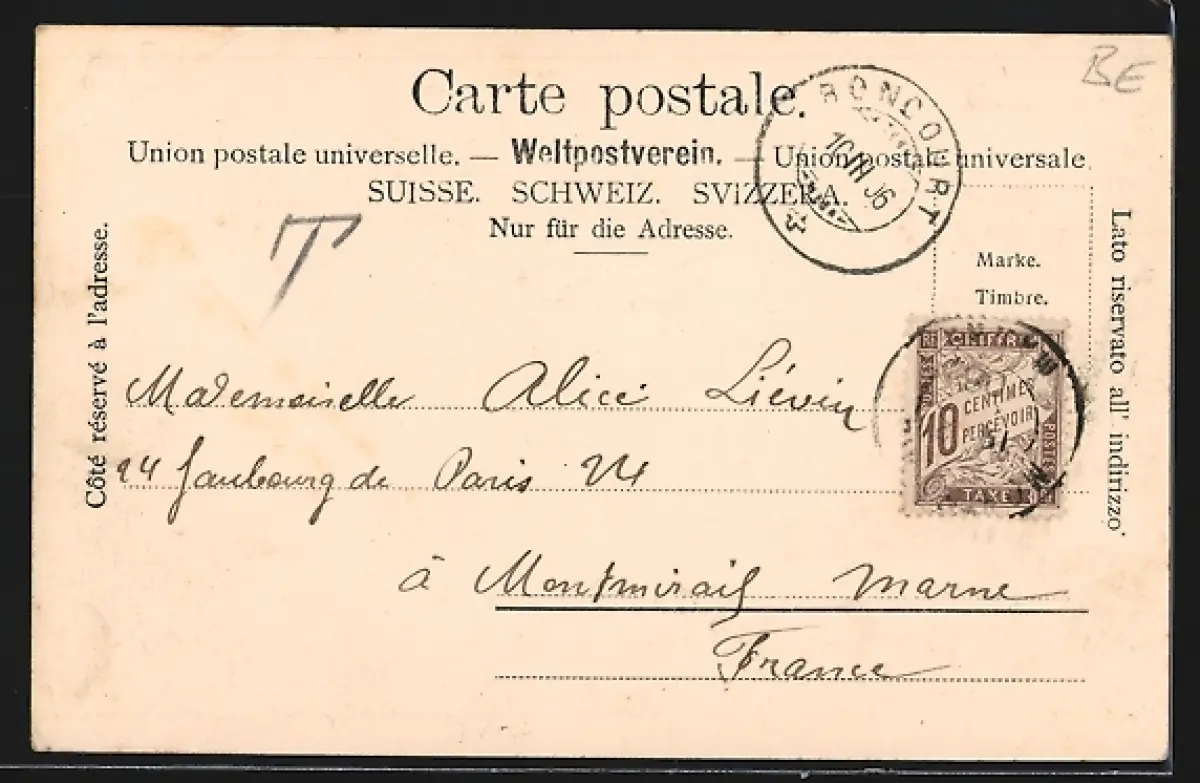 BE
Carte postale.
Union postale universelle. — Weltpostverein. — Union postale universale
SUISSE. SCHWEIZ. SVIZZERA.
Nur für die Adresse.
BONCOURT
Marke.
Timbre.
Côté réservé à l'adresse.
Lato riservato all' indirizzo
T
CHIFFRE
10 CENTIMES
À
PERCEVOIR
POSTES
TAXE
Mademoiselle Alice Liévin
24 faubourg de Paris 24
à Montmirail Marne
France